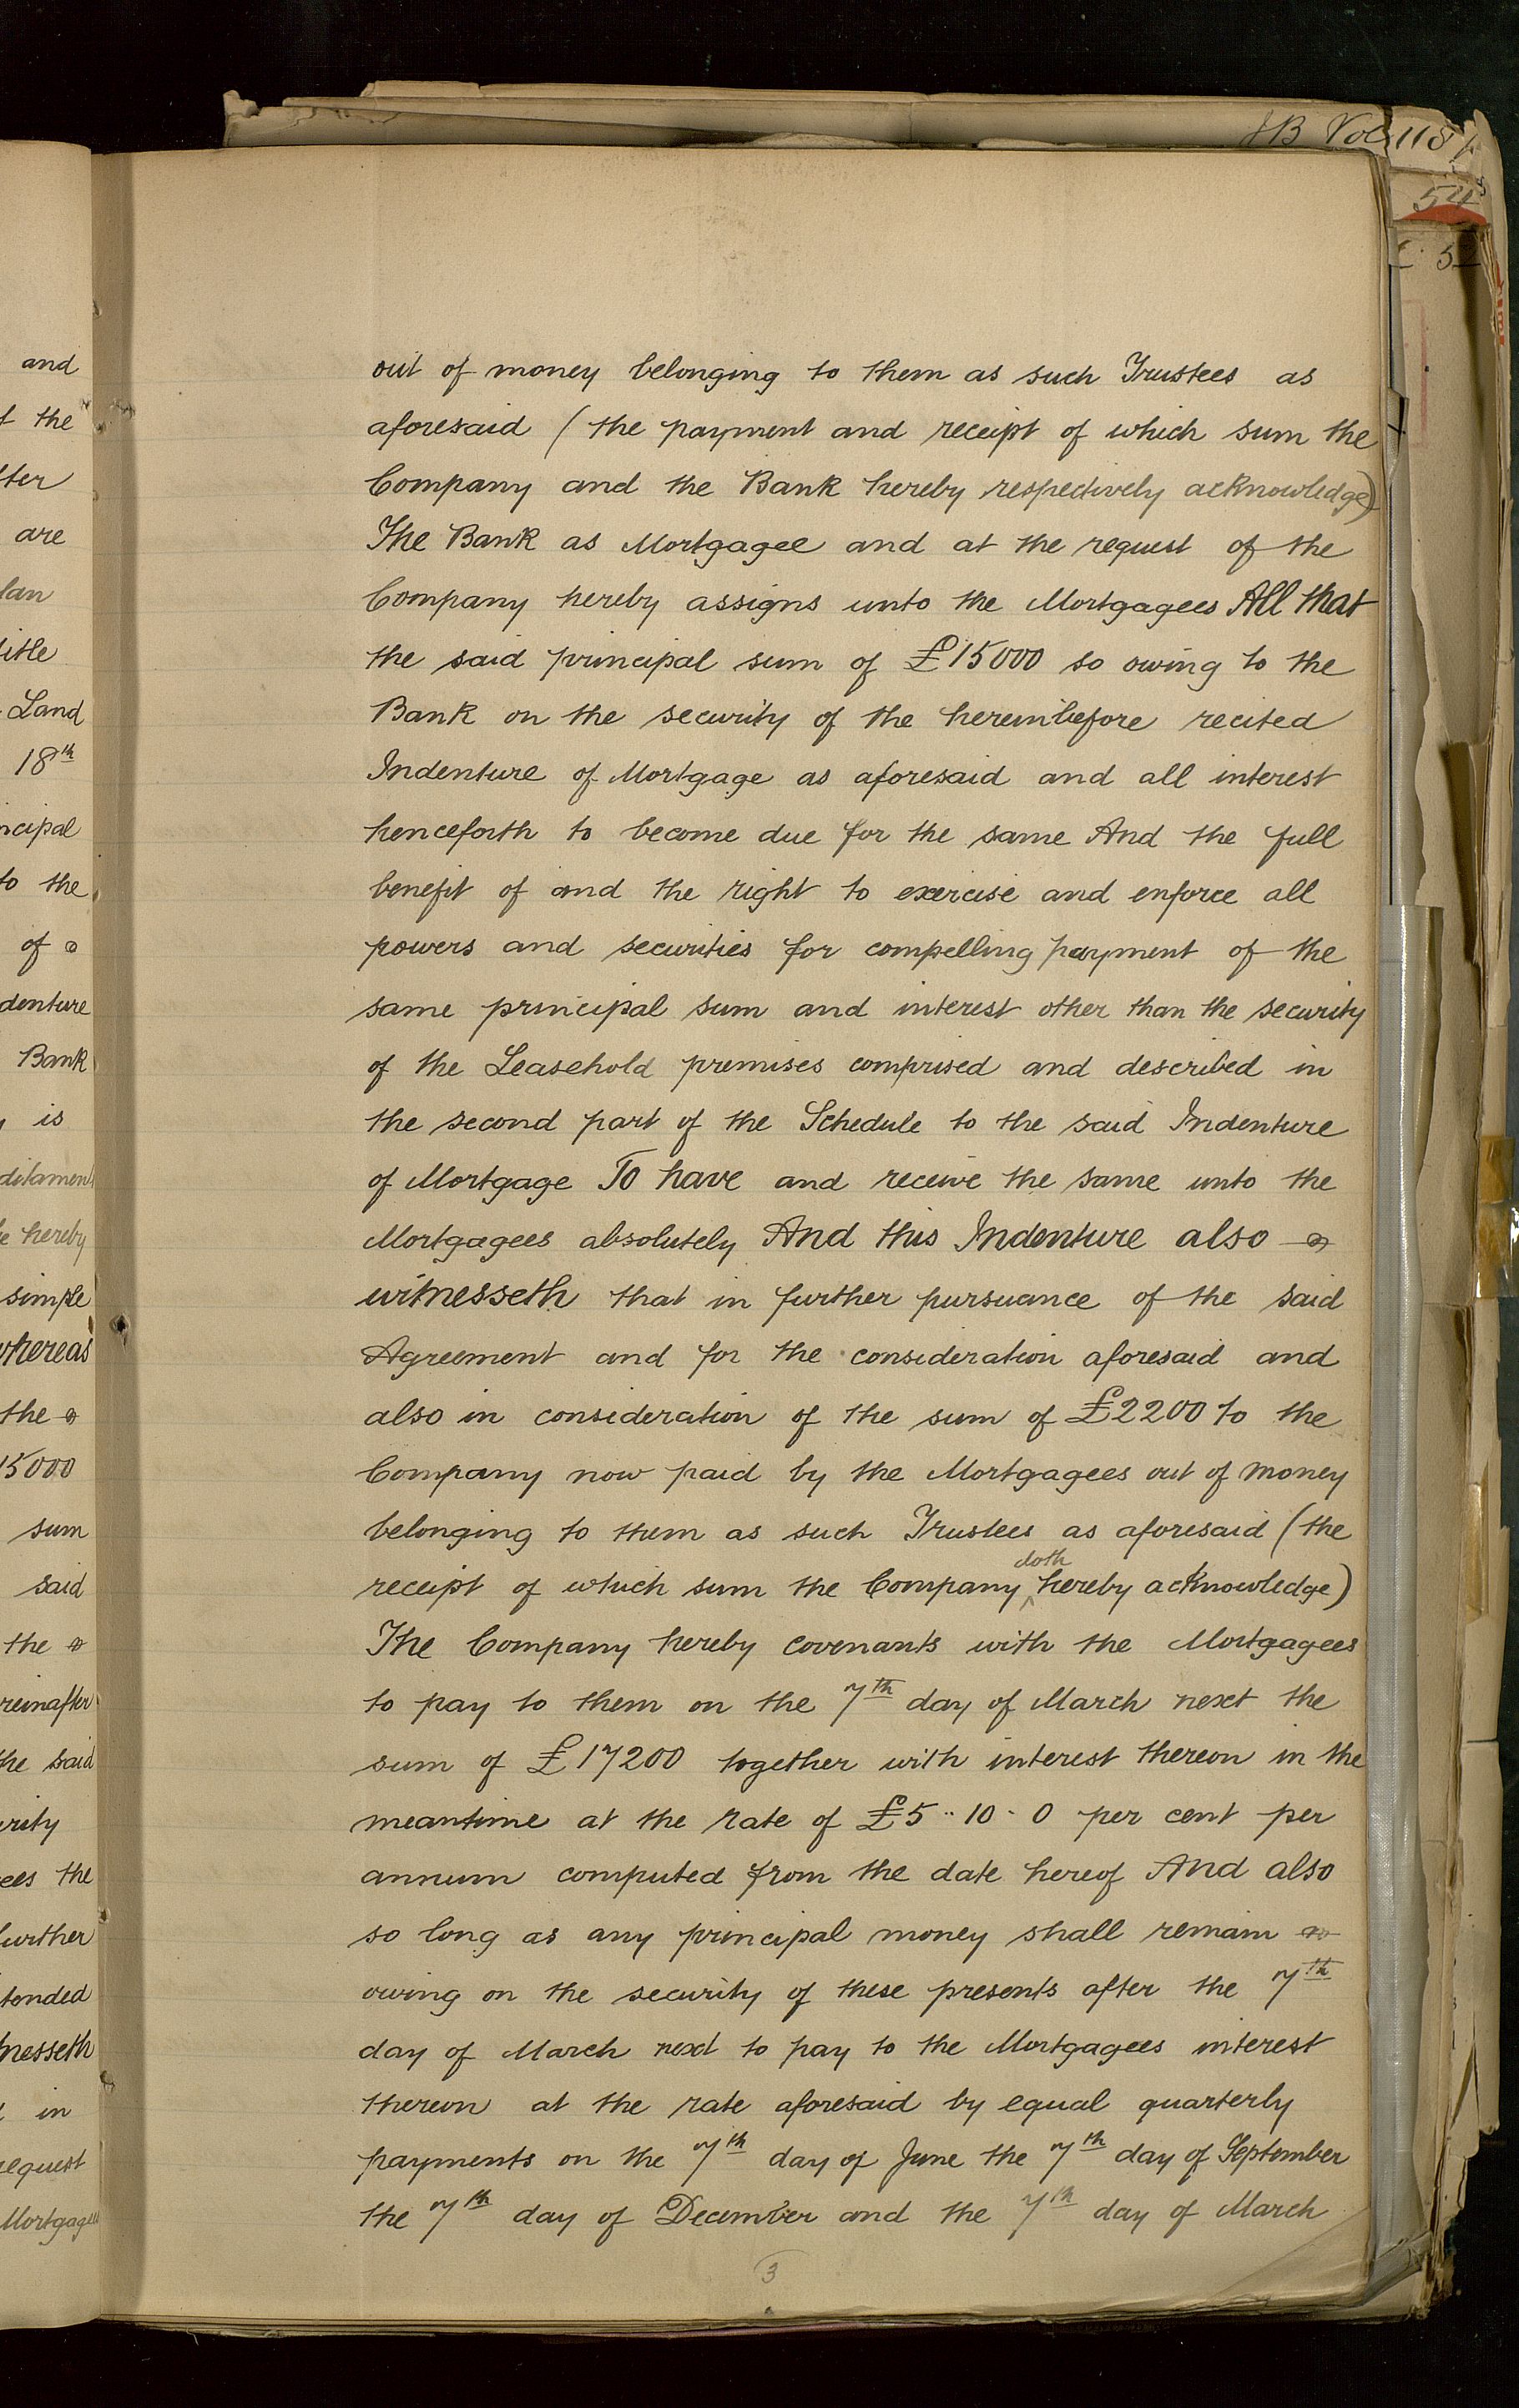 JB Vol 118
54
C. 5
and
the
fter
are
lan
itle
Land
18th
ncipal
to the
of
denture
Bank
is
ditament
hereby
simple
whereas
the
15000
sum
said
the
reinafter
the said
urity
ees the
further
tended
nesseth
in
request
Mortgagees
out of money belonging to them as such Trustees as
aforesaid (the payment and receipt of which sum the
Company and the Bank hereby respectively acknowledge)
The Bank as Mortgagee and at the request of the
Company hereby assigns unto the Mortgagees All that
the said principal sum of £15000 so owing to the
Bank on the security of the hereinbefore recited
Indenture of Mortgage as aforesaid and all interest
henceforth to become due for the same And the full
benefit of and the right to exercise and enforce all
powers and securities for compelling payment of the
same principal sum and interest other than the security
of the Leasehold premises comprised and described in
the second part of the Schedule to the said Indenture
of Mortgage To have and receive the same unto the
Mortgagees absolutely And this Indenture also
witnesseth that in further pursuance of the said
Agreement and for the consideration aforesaid and
also in consideration of the sum of £2200 to the
Company now paid by the Mortgagees out of money
belonging to them as such Trustees as aforesaid (the
receipt of which sum the Company doth hereby acknowledge)
The Company hereby covenants with the Mortgagees
to pay to them on the 7th day of March next the
sum of £17200 together with interest thereon in the
meantime at the rate of £5 .. 10 - 0 per cent per
annum computed from the date hereof And also
so long as any principal money shall remain
owing on the security of these presents after the 7th
day of March next to pay to the Mortgagees interest
thereon at the rate aforesaid by equal quarterly
payments on the 7th day of June the 7th day of September
the 7th day of December and the 7th day of March
3